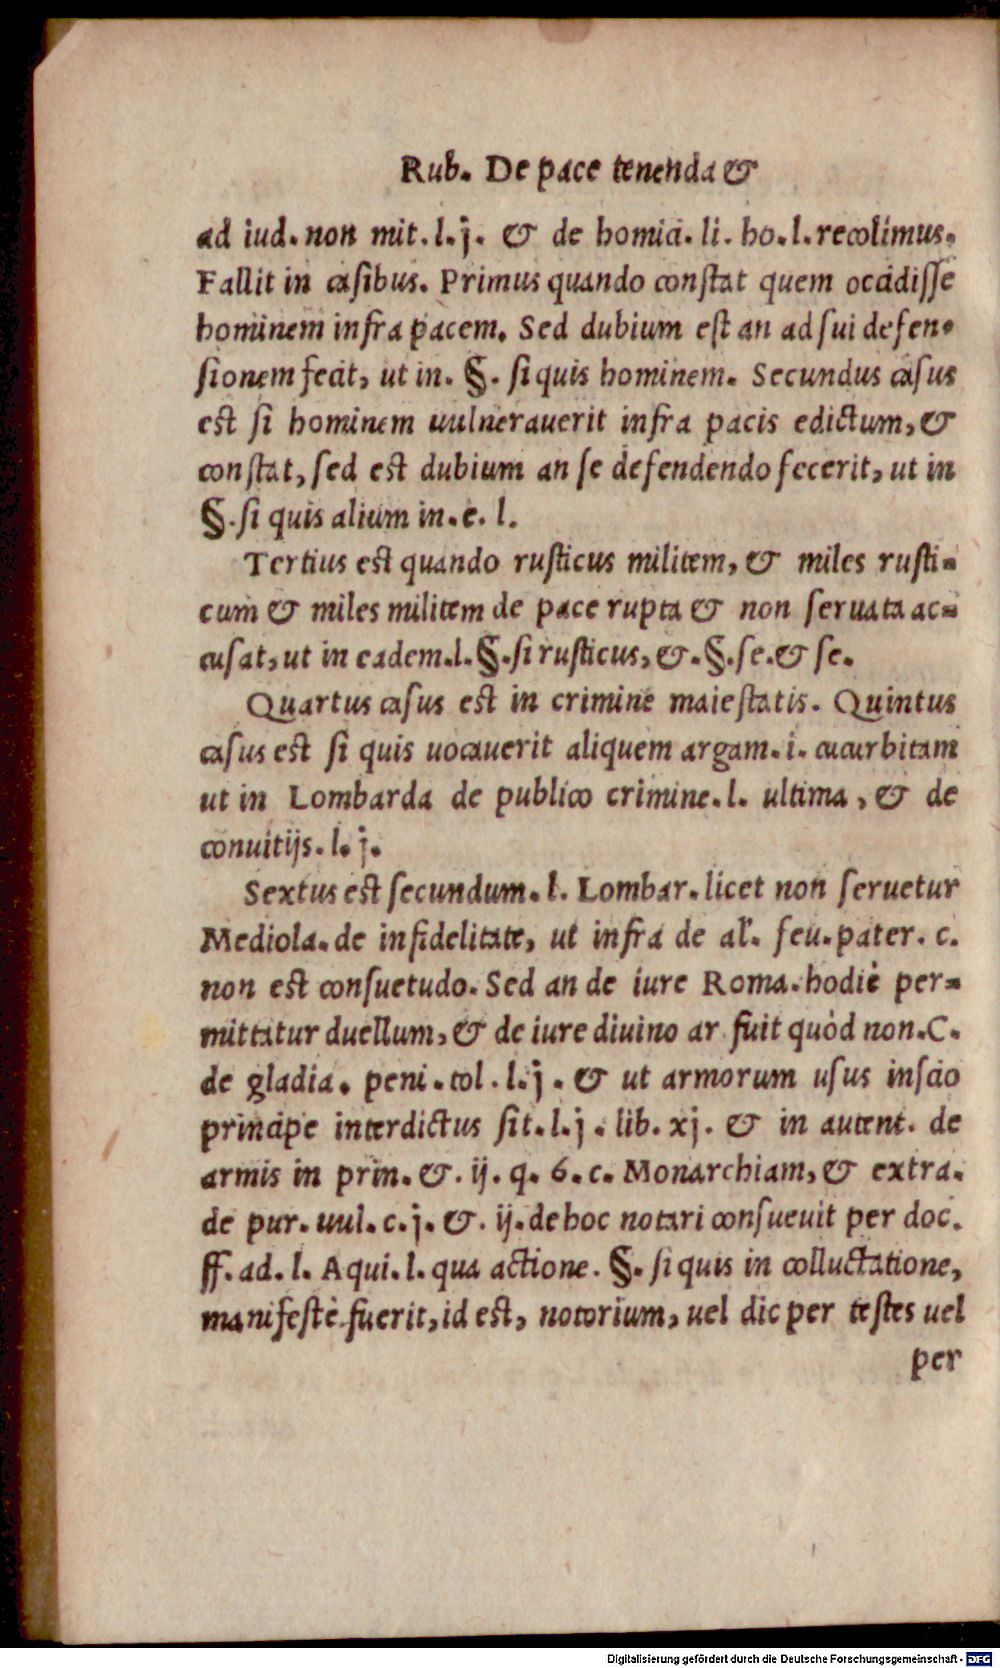 Rub. De pace tenenda &
ad iud. non mit. l. j. & de homici. li. ho. l. recolimus.
Fallit in casibus. Primus quando constat quem occidisse
hominem infra pacem. Sed dubium est an ad sui defen-
sionem fecit, ut in. §. si quis hominem. Secundus casus
est si hominem uulnerauerit infra pacis edictum, &
constat, sed est dubium an se defendendo fecerit, ut in
§. si quis alium in. e. l.
Tertius est quando rusticus militem, & miles rusti-
cum & miles militem de pace rupta & non seruata ac-
cusat, ut in eadem. l. §. si rusticus, &. §. se. & se.
Quartus casus est in crimine maiestatis. Quintus
casus est si quis uocauerit aliquem argam. i. cucurbitam
ut in Lombarda de publico crimine. l. ultima, & de
conuitijs. l. j.
Sextus est secundum. l. Lombar. licet non seruetur
Mediola. de infidelitate, ut infra de al'. feu. pater. c.
non est consuetudo. Sed an de iure Roma. hodiè per-
mittatur duellum, & de iure diuino ar fuit quòd non. C.
de gladia. peni. tol. l. j. & ut armorum usus inscio
principe interdictus sit. l. j. lib. xj. & in autent. de
armis in prin. &. ij. q. 6. c. Monarchiam, & extra.
de pur. uul. c. j. &. ij. de hoc notari consueuit per doc.
ff. ad. l. Aqui. l. qua actione. §. si quis in colluctatione,
manifestè fuerit, id est, notorium, uel dic per testes uel
per
Digitalisierung gefördert durch die Deutsche Forschungsgemeinschaft - DFG